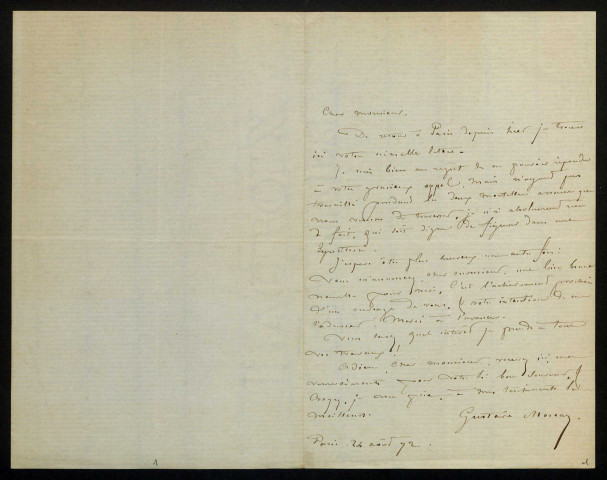 Cher monsieur.
De retour à Paris depuis hier je trouve
ici votre aimable lettre.
Je suis bien au regret de ne pouvoir répondre
à votre gracieux appel, mais n'ayant pas
travaillé pendant les deux mortelles années que
nous venons de traverser, je n'ai absolument rien
de fait, qui soit digne de figurer dans une
Exposition.
J'espère être plus heureux une autre fois.
Vous m'annoncez, cher monsieur, une bien bonne
nouvelle pour moi. C'est l'achèvement prochain
d'un ouvrage de vous, & votre intention de me
l'adresser. Merci à l'avance.
Vous savez quel intérêt je prends à tous
vos travaux!
Adieu, cher monsieur, recevez ici mes
remerciements pour votre si bon souvenir, &
croyez, je vous prie, à mes sentiments les
meilleurs.
Gustave Moreau.
Paris 24 août 72.
1